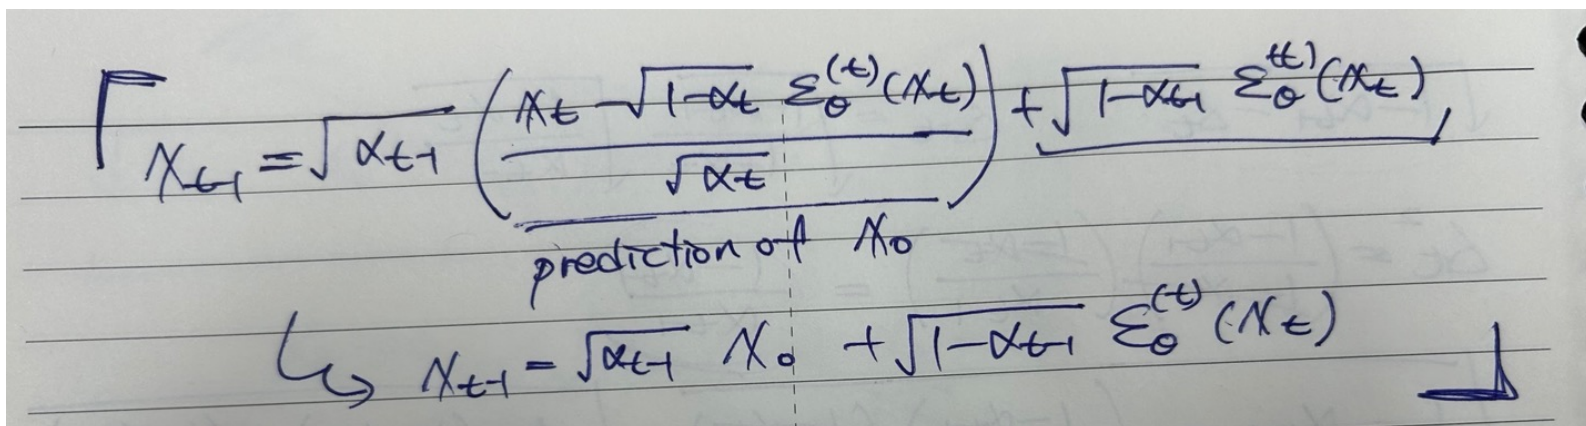 ⌈ x_{t-1} = √α_{t-1} ( (x_t - √(1-α_t) ε_θ^{(t)}(x_t)) / √α_t ) + √(1-α_{t-1}) ε_θ^{(t)}(x_t)
prediction of x_0
↳ x_{t-1} = √α_{t-1} x_0 + √(1-α_{t-1}) ε_θ^{(t)}(x_t) ⌋